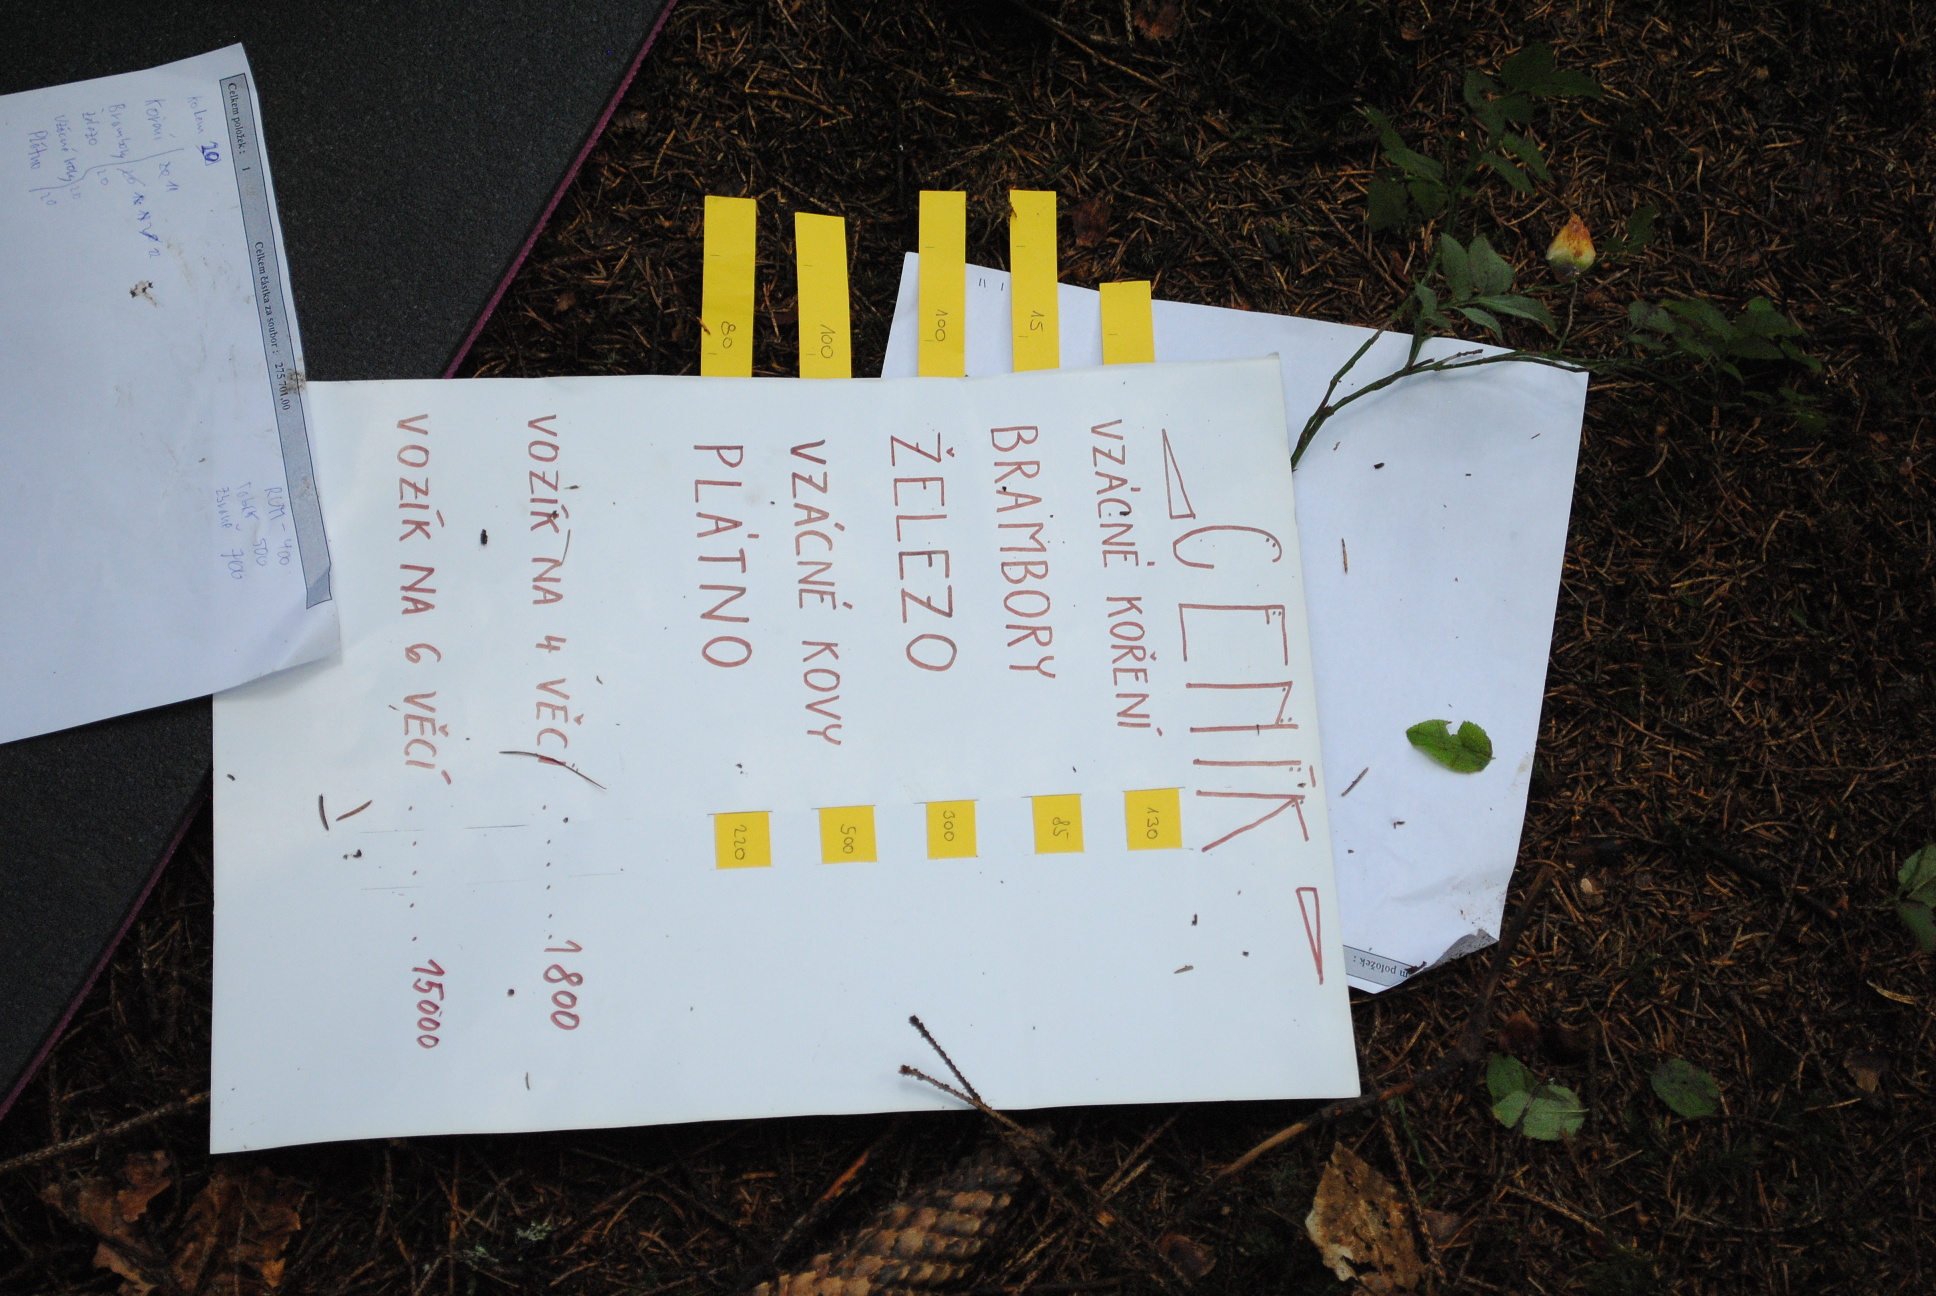 CENÍK
VZÁCNÉ KOŘENÍ 130
BRAMBORY 15 85
ŽELEZO 100 300
VZÁCNÉ KOVY 100 500
PLÁTNO 80 220
VOZÍK NA 4 VĚCI 1800
VOZÍK NA 6 VĚCÍ 15000
Celkem položek : 1 Celkem částka za soubor : 275 701,00
kolem 20
Koření 20
Brambory
železo 20
vzácné kovy 20
Plátno 20
RUM - 400
Tabák 500
zbraně 700
m položek :